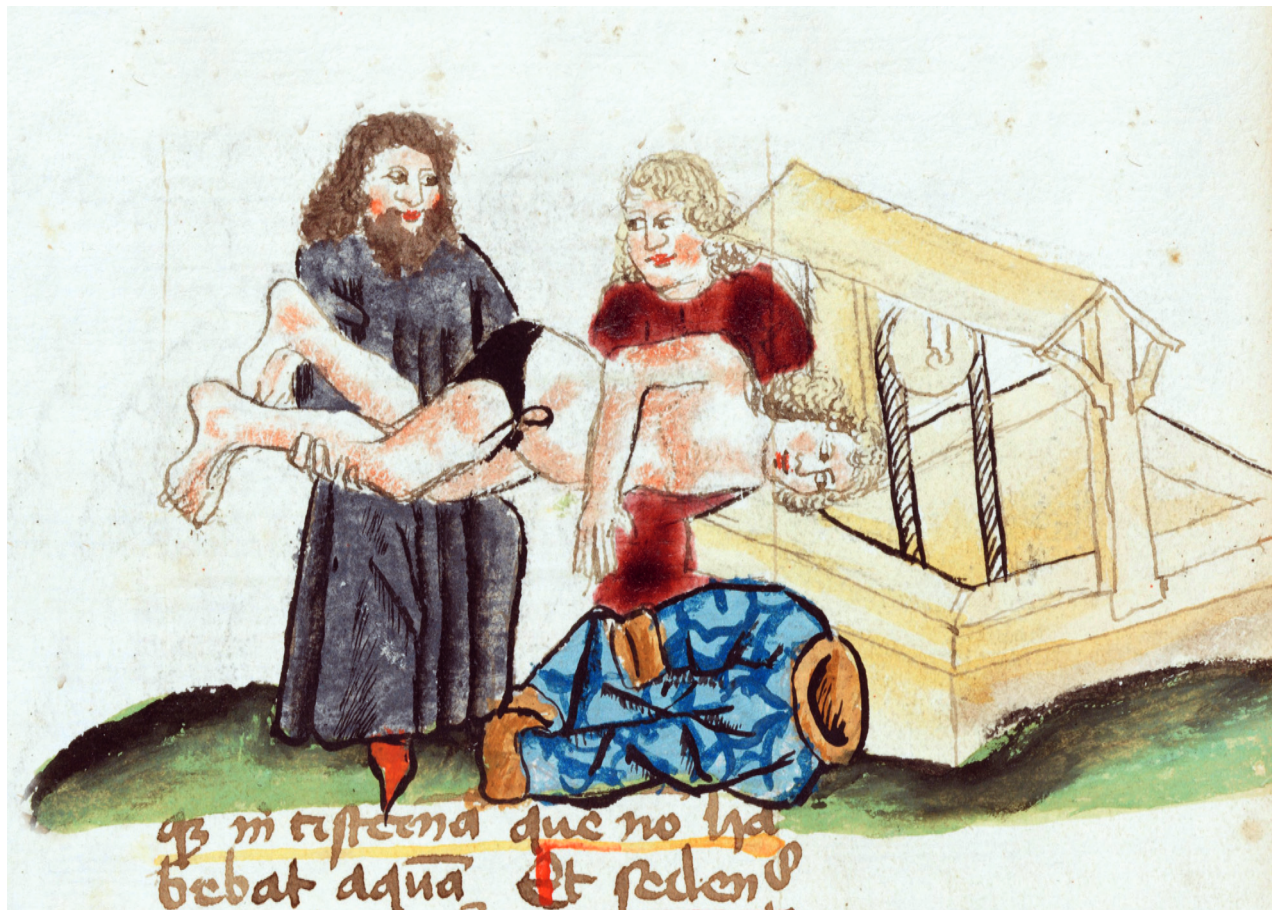 q3 in cisterna que no ha
bebat aquā Et seden